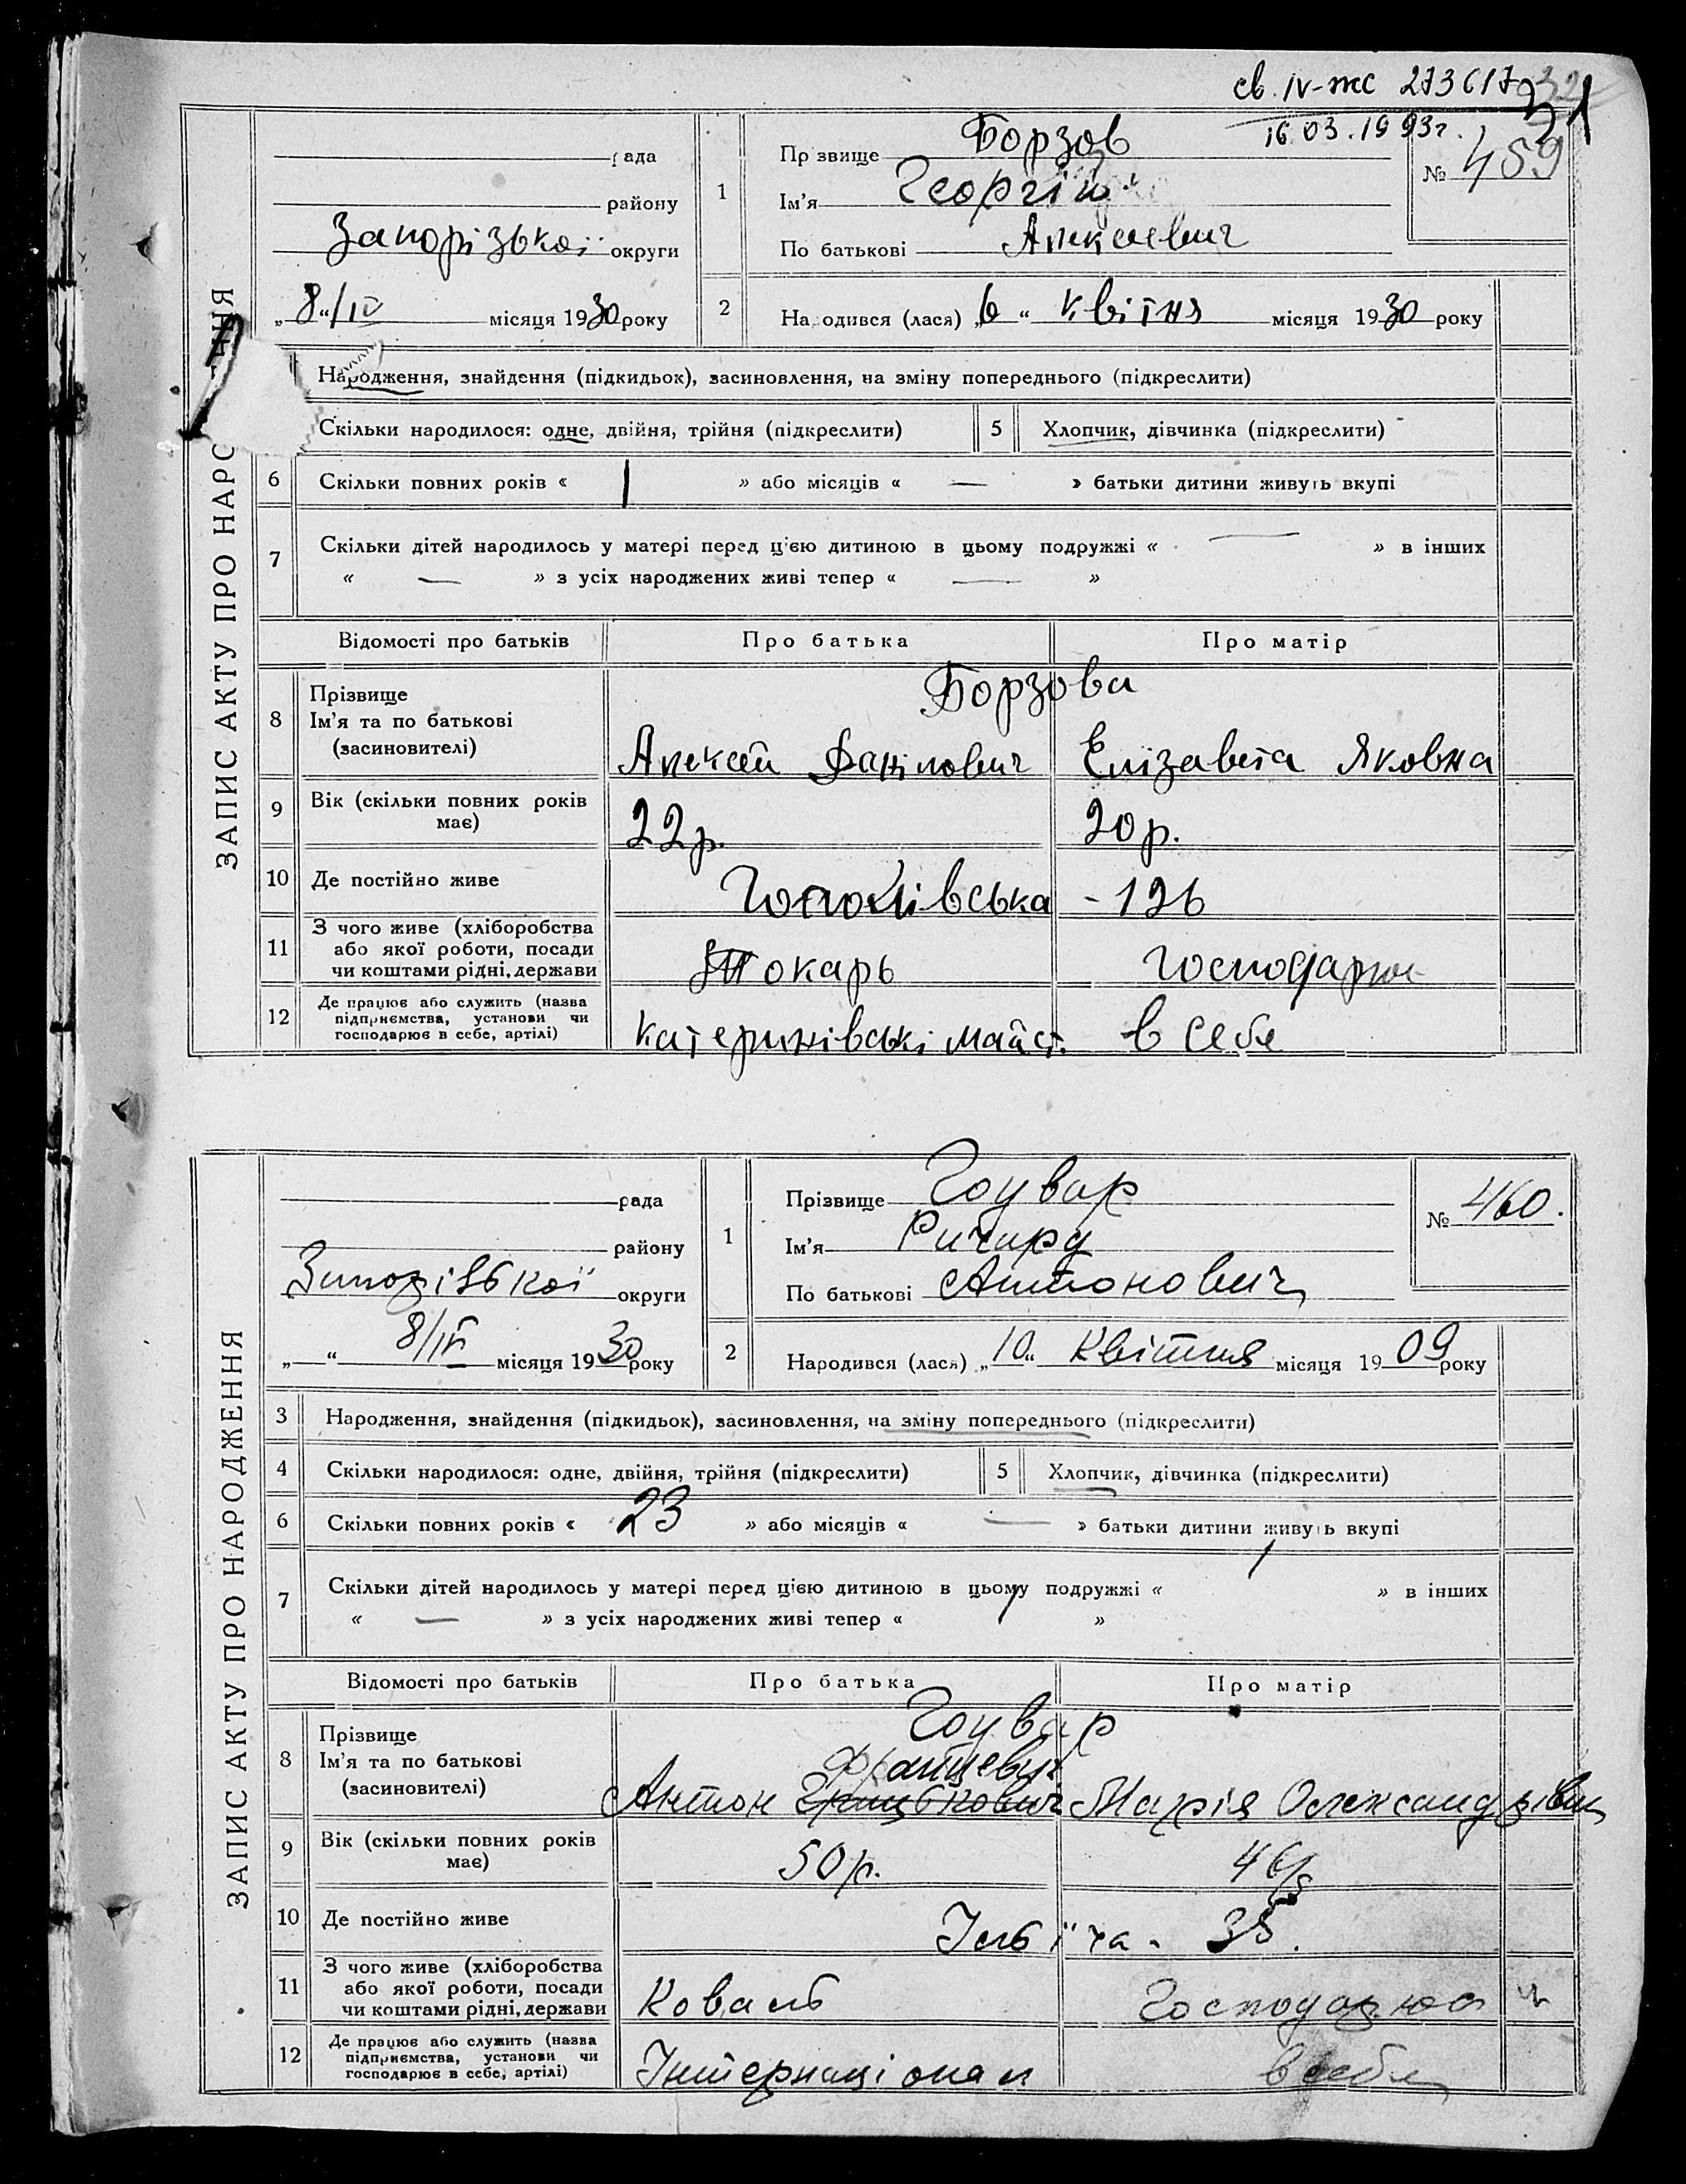 св. IV-жс 273617
31
16.03.1993г.
ЗАПИС АКТУ ПРО НАРО
рада
району
Запорізької округи
„8“/IV місяця 1930 року
1
Пр звище Борзов
Ім'я Георгій
По батькові Алексеевич
№ 459
2
На одився (лася) „6“ квітня місяця 1930 року
Народження, знайдення (підкидьок), засиновлення, на зміну попереднього (підкреслити)
Скільки народилося: одне, двійня, трійня (підкреслити)
5 Хлопчик, дівчинка (підкреслити)
6 Скільки повних років « 1 » або місяців « — » батьки дитини живуть вкупі
7 Скільки дітей народилось у матері перед цією дитиною в цьому подружжі « — » в інших
« — » з усіх народжених живі тепер « — »
Відомості про батьків Про батька Про матір
8 Прізвище
Ім'я та по батькові
(засиновителі)
Борзова
Алексей Данілович Елізавета Яковна
9 Вік (скільки повних років
має)
22р. 20р.
10 Де постійно живе
- 126
11 З чого живе (хліборобства
або якої роботи, посади
чи коштами рідні, держави
Токарь Господарює
12 Де працює або служить (назва
підприємства, установи чи
господарює в себе, артілі)
Катеринівські майст. в себе
ЗАПИС АКТУ ПРО НАРОДЖЕННЯ
рада
району
Запорізької округи
„—“ 8/IV місяця 1930 року
1
Прізвище Гоувар
Ім'я Ричард
По батькові Антонович
№ 460.
2
Народився (лася) „10“ Квітня місяця 1909 року
3 Народження, знайдення (підкидьок), засиновлення, на зміну попереднього (підкреслити)
4 Скільки народилося: одне, двійня, трійня (підкреслити)
5 Хлопчик, дівчинка (підкреслити)
6 Скільки повних років « 23 » або місяців « — » батьки дитини живуть вкупі
7 Скільки дітей народилось у матері перед цією дитиною в цьому подружжі « » в інших
« — » з усіх народжених живі тепер « »
Відомості про батьків Про батька Про матір
8 Прізвище
Ім'я та по батькові
(засиновителі)
Гоувар
Францевич
Антон Марія Олександрівна
9 Вік (скільки повних років
має)
50р. 46
10 Де постійно живе
Ілліча - 35.
11 З чого живе (хліборобства
або якої роботи, посади
чи коштами рідні, держави
Коваль Господарює
12 Де працює або служить (назва
підприємства, установи чи
господарює в себе, артілі)
Інтернаціонал в себе